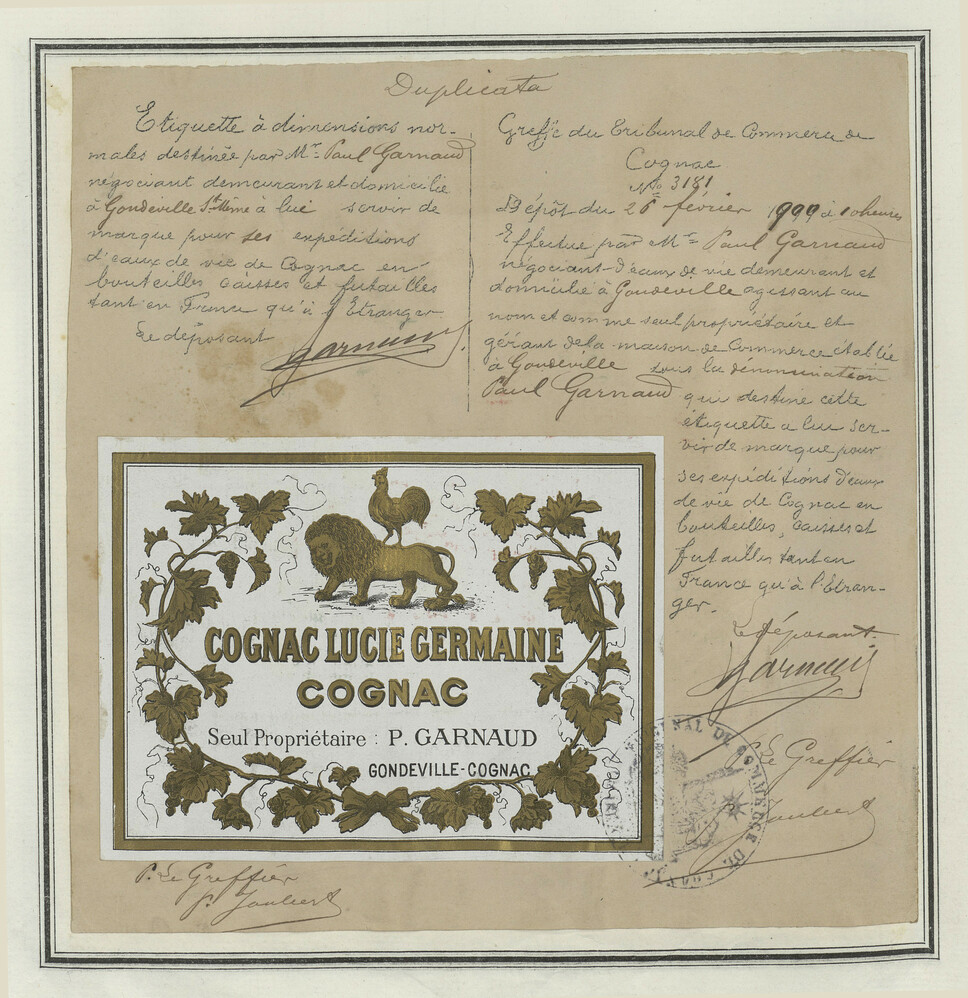 Duplicata
Etiquette à dimensions nor-
males destinée par Mr. Paul Garnaud
négociant demeurant et domicilié
à Gondeville St. Même à lui servir de
marque pour ses expéditions
d'eaux de vie de Cognac en
bouteilles caisses et futailles
tant en France qu'à l'Etranger
Le déposant
Garnaud
Greffe du Tribunal de Commerce de
Cognac
No. 3181
Dépôt du 26 février à 10 heures
Effectué par Mr. Paul Garnaud
négociant d'eaux de vie demeurant et
domicilié à Gondeville agissant au
nom et comme seul propriétaire et
gérant de la maison de Commerce établie
à Gondeville sous la dénomination
Paul Garnaud qui destine cette
étiquette a lui ser-
vir de marque pour
ses expéditions d'eaux
de vie de Cognac en
bouteilles, caisses et
futailles tant en
France qu'à l'Etran-
ger.
Le déposant
Garnaud
COGNAC LUCIE GERMAINE
COGNAC
Seul Propriétaire : P. GARNAUD
GONDEVILLE-COGNAC
P. Le Greffier
Joubert
TRIBUNAL DE COMMERCE DE COGNAC
P. Le Greffier
Joubert